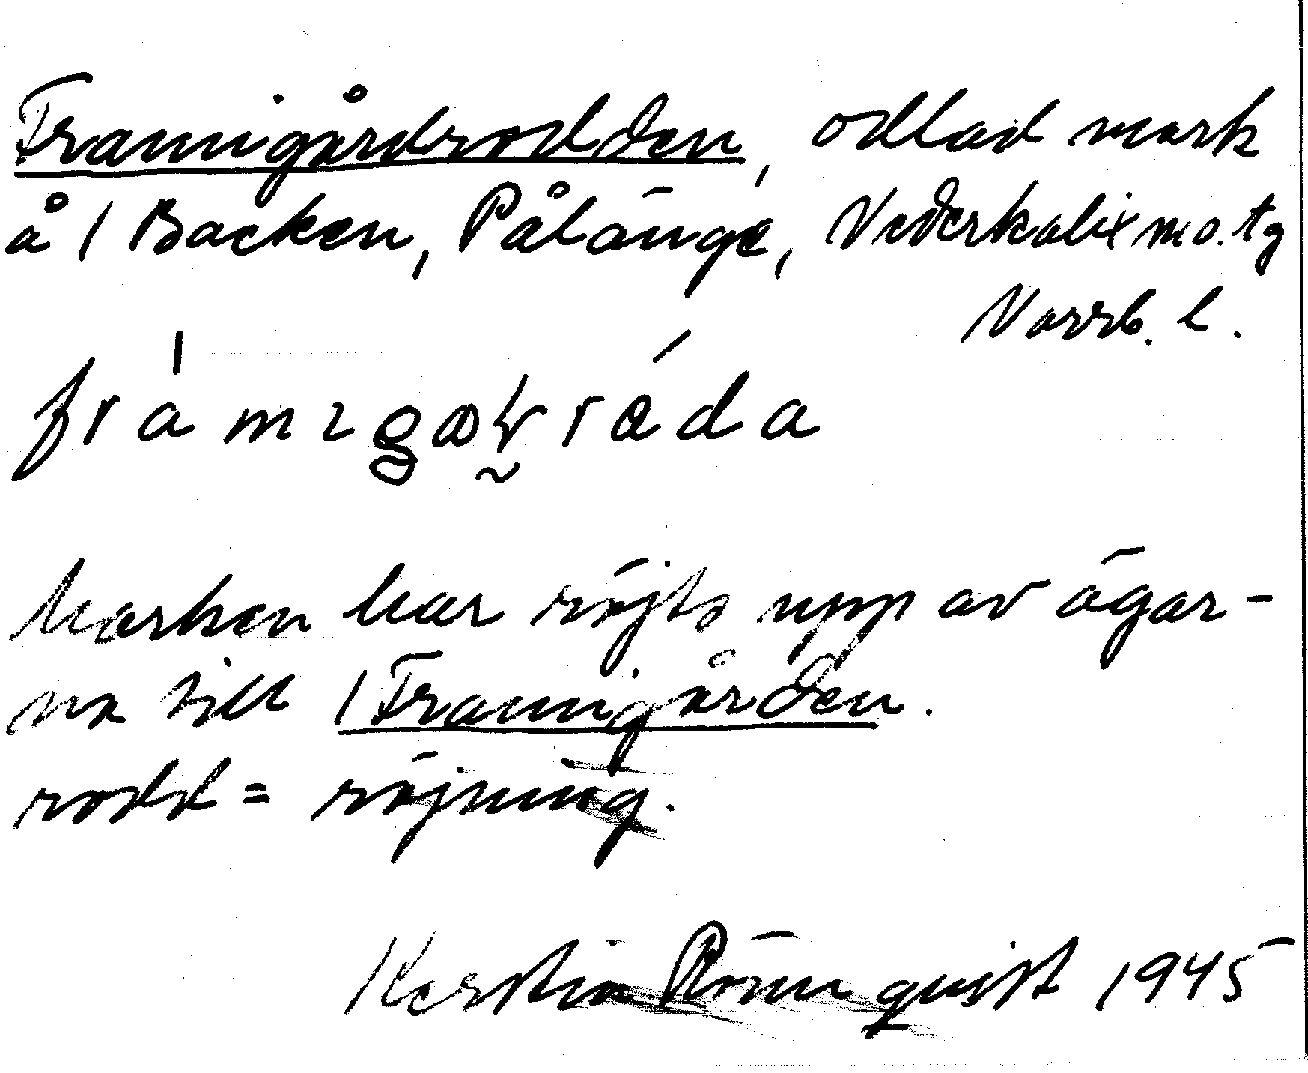 Framigårdrodden, odlad mark
å / Backen, Pålänge, Nederkalix sn o. tg
Norrb. l.
Marken har röjts upp av ägar-
na till / Framigården.
rodd = röjning.
Kerstin Rönnquist 1945